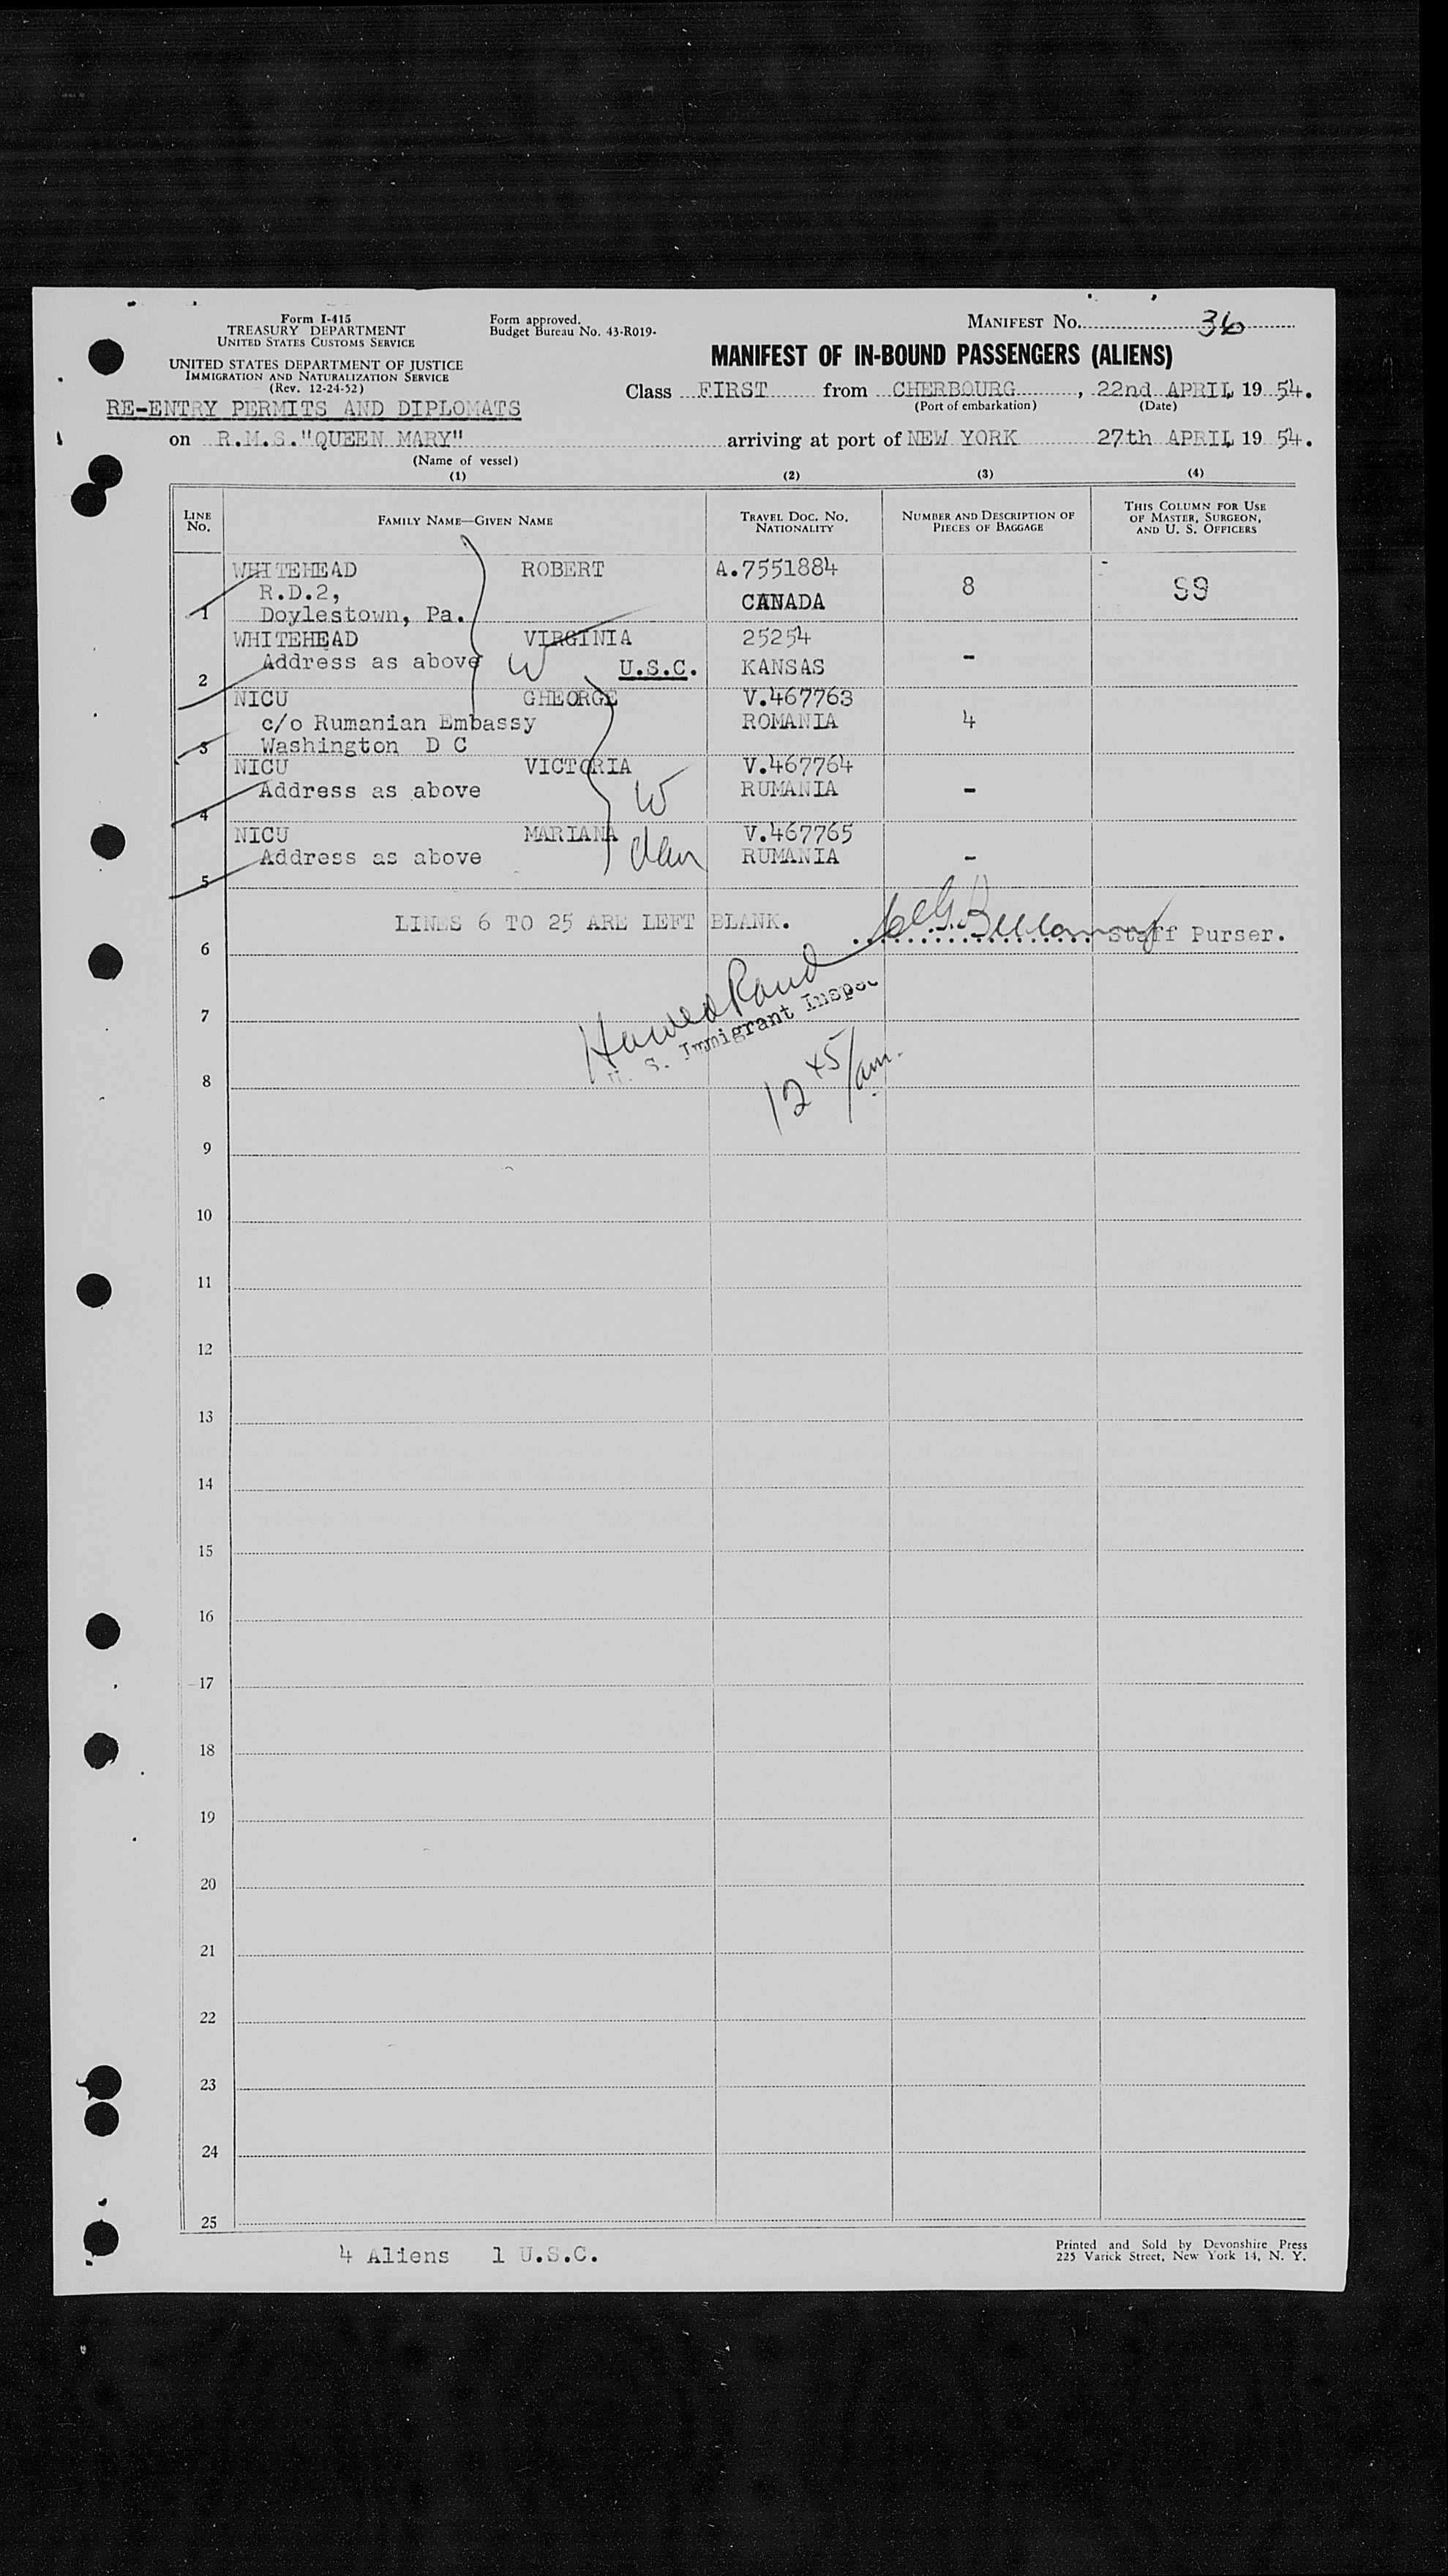 Form I-415
TREASURY DEPARTMENT
UNITED STATES CUSTOMS SERVICE
UNITED STATES DEPARTMENT OF JUSTICE
IMMIGRATION AND NATURALIZATION SERVICE
(Rev. 12-24-52)
RE-ENTRY PERMITS AND DIPLOMATS
Form approved.
Budget Bureau No. 43-R019-
MANIFEST No. 36
MANIFEST OF IN-BOUND PASSENGERS (ALIENS)
Class FIRST from CHERBOURG, 22nd APRIL, 19 54.
(Port of embarkation) (Date)
on R.M.S."QUEEN MARY" arriving at port of NEW YORK 27th APRIL, 19 54.
(Name of vessel)
(1) (2) (3) (4)
LINE No. FAMILY NAME—GIVEN NAME TRAVEL DOC. NO. NATIONALITY NUMBER AND DESCRIPTION OF PIECES OF BAGGAGE THIS COLUMN FOR USE OF MASTER, SURGEON, AND U. S. OFFICERS
WHITEHEAD ROBERT A.7551884
R.D.2, CANADA 8 S9
1 Doylestown, Pa.
WHITEHEAD VIRGINIA 25254
Address as above W U.S.C. KANSAS -
2
NICU GHEORGE V.467763
c/o Rumanian Embassy ROMANIA 4
3 Washington D C
NICU VICTORIA V.467764
Address as above W RUMANIA -
4
NICU MARIANA V.467765
Address as above RUMANIA -
5
LINES 6 TO 25 ARE LEFT BLANK. Staff Purser.
6
7
U. S. Immigrant Inspec
12 45/am.
8
9
10
11
12
13
14
15
16
17
18
19
20
21
22
23
24
25
4 Aliens 1 U.S.C.
Printed and Sold by Devonshire Press
225 Varick Street, New York 14, N. Y.